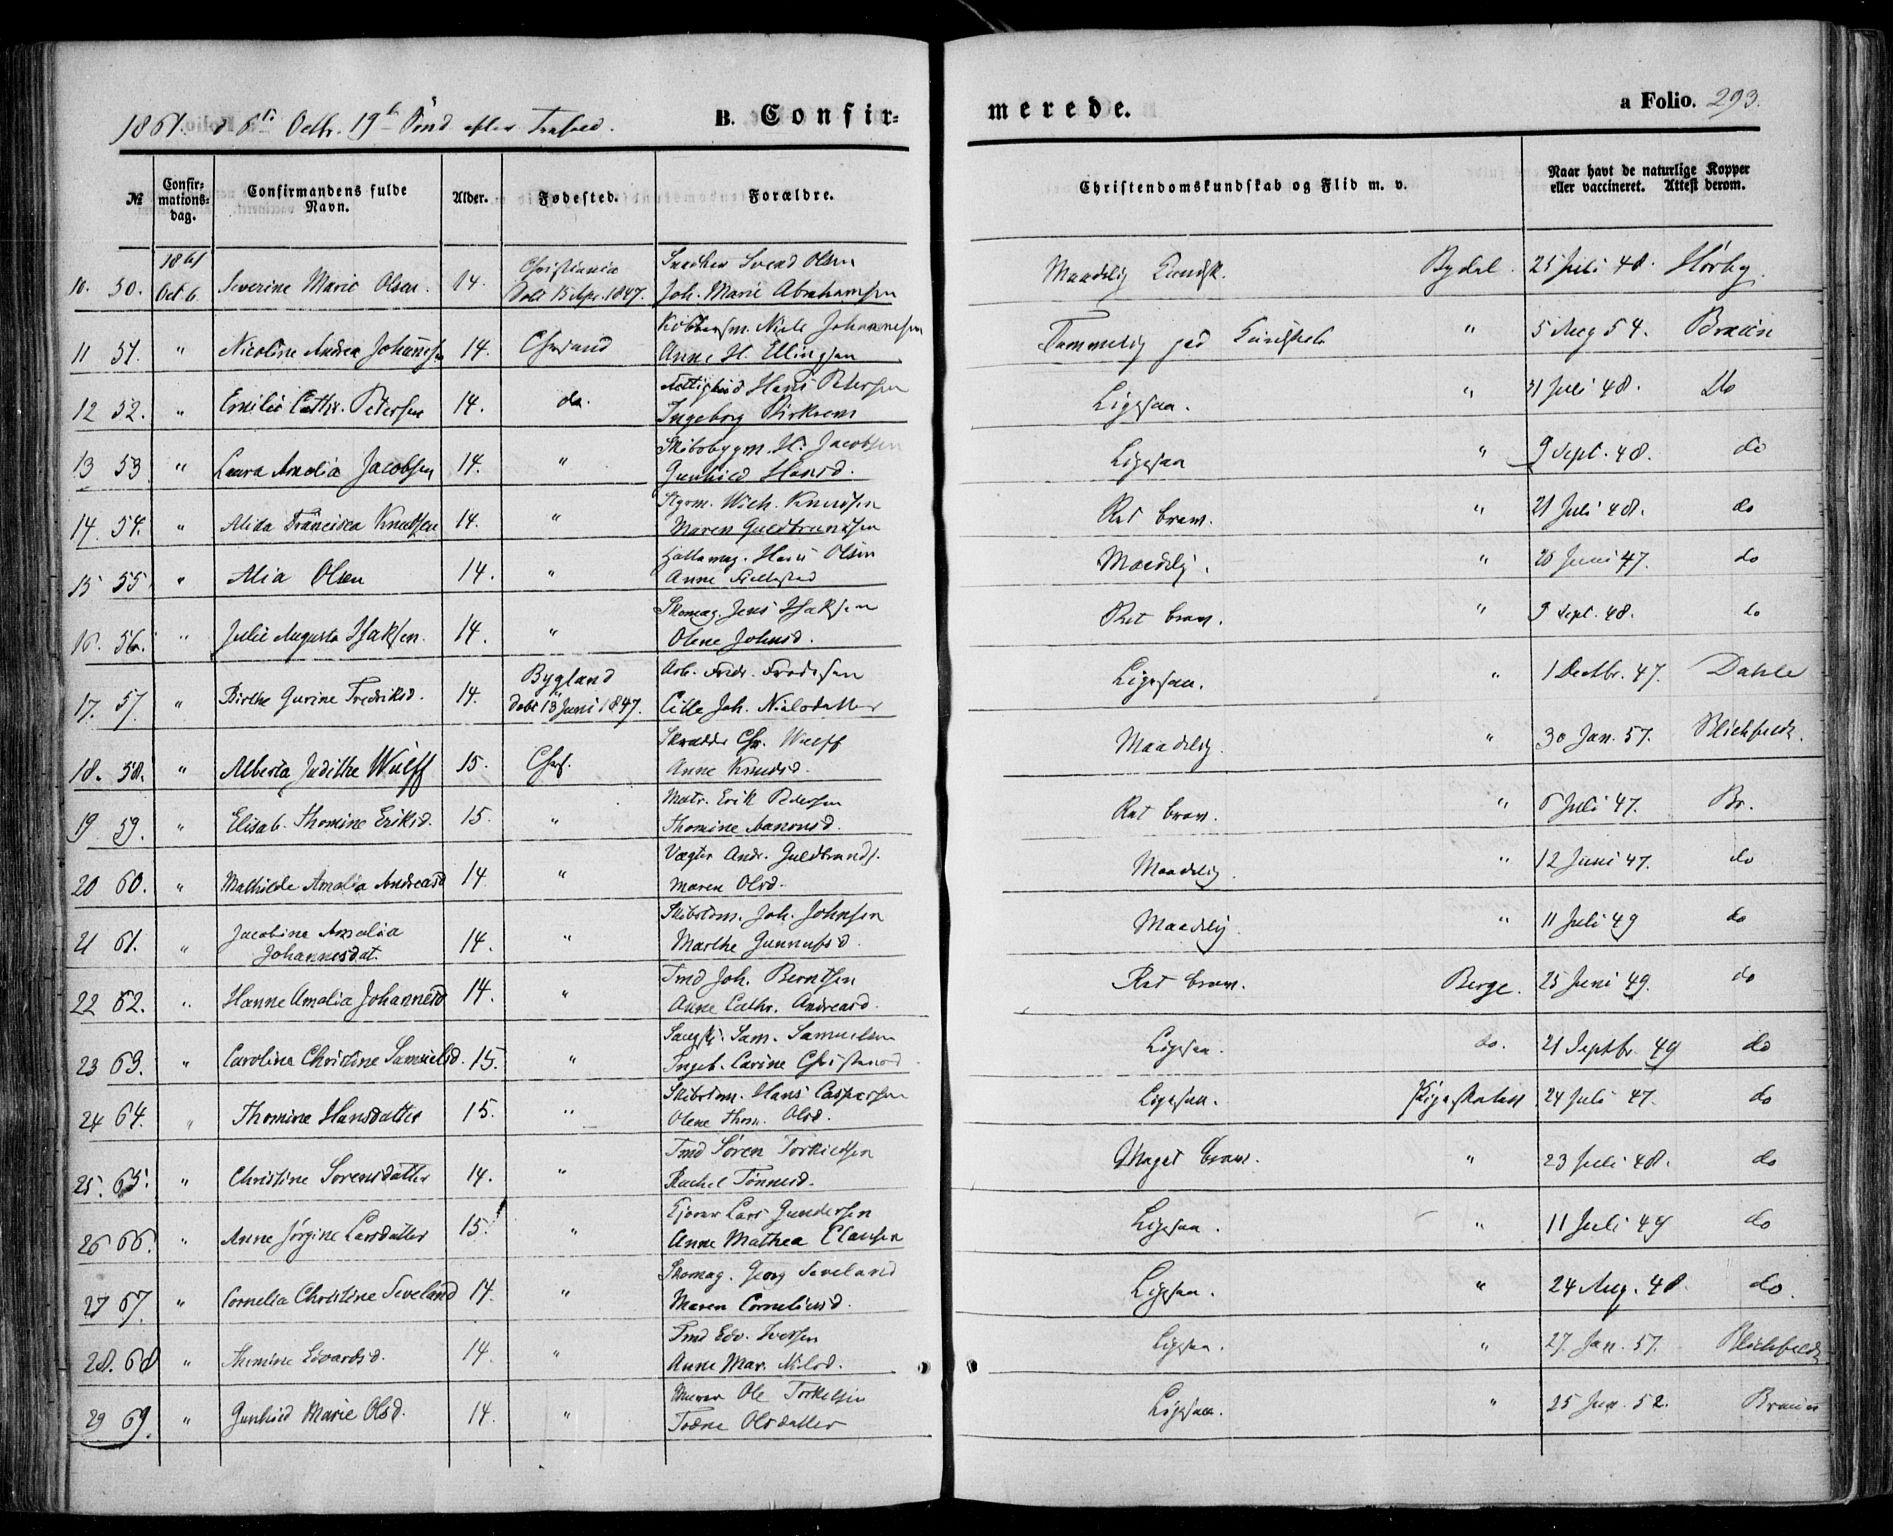 1861. d 6te Octbr. 19de Sønd efter Trefold.
B. Confir=
merede.
a Folio. 293.
№ Confir-mations-dag. Confirmandens fulde Navn. Alder. Fødested. Forældre. Christendomskundskab og Flid m. v. Naar havt de naturlige Kopper eller vaccineret. Attest derom.
1861 Christiania Snedker Svend Olsen
10. 50. Oct 6. Severine Marie Olsen. 14. Døbt 15 Apr. 1847. Joh. Marie Abrahamsen Maadelig Kundsk. Bydel. 25 Juli 48. Hørby
Kobbersm. Niels Johannesen
11 51. " Nicoline Andrea Johannesen 14. Chrsand Anne H. Ellingsen Temmelig god Kundskab " 5 Aug 54. Braün
Hans Petersen
12 52. " Emilie Cathr. Petersen 14. do. Ingeborg Ligesaa. " 21 Juli 48. Do
Skibsbygm. H. Jacobsen
13 53 " Laura Amalia Jacobsen 14. " Gunhild Hansd. Ligesaa " 9 Sept. 48. do
Mich. Knudsen
14 54. " Alida Francisca Knudsen 14. " Maren Guldbrandsen Ret brav. " 21 Juli 48. do
Hans Olsen
15 55 " Mia Olsen 14. " Anne Maadelig. " 20 Juni 47. do
Skomag. Jens Isaksen
16. 56. " Julie Augusta Isaksen. 14. " Olene Johnsd. Ret brav. " 9 Sept. 48. do
Bygland Arb. Fredr. Fredrsen
17. 57. " Birthe Gurine Fredriksd. 14. døbt 13 Juni 1847. Cille Joh. Nielsdatter Ligesaa. " 1 Decbr. 47. Dahle
Skrædder Chr. Wulff
18. 58. " Alberta Judithe Wulff 15. Chrs. Anne Knudsd. Maadelig. " 30 Jan. 57. Blichfeldt.
Matr. Erik Pedersen
19 59. " Elisab. Thomine Eriksd. 15. " Thomine Aanonsd. Ret brav. " 6 Juli 47. Br.
Vægter Andr. Guldbrands.
20 60. " Mathilde Amalia Andreasd 14 " Maren Olsd. Maadelig. " 12 Juni 47. do
Skibstøm. Joh. Johnsen
21 61. " Jacobine Amalia Johannesdat. 14. " Marthe Gunnufsd. Maadelig. " 11 Juli 49 do
Tmd Joh. Berntsen
22 62. " Hanne Amalia Johannesd 14. " Anne Cathr. Andreasd. Ret brav. Berge. 25 Juni 49. do
Sam. Samuelsen
23 63. " Carolina Christine Samuelsd. 15. " Ingeb. Carine Christensd. Ligesaa. do. 21 Septbr. 49 do
Skibstøm. Hans Caspersen
24 64. " Thomine Hansdatter 15. " Olene Thom. Olsd. Ligesaa. 24 Juli 47. do
Tmd Søren Torkildsen
25. 65. " Christine Sørensdatter 14. " Rachel Tønnesd. Meget brav. " 23 Juli 48. do
Lars Gundersen
26 66. " Anne Jørgine Larsdatter 15. " Anne Mathea Clausen Ligesaa. " 11 Juli 49 do
Skomag. Georg Seveland
27 67. " Cornelia Christine Seveland 14. " Maren Corneliusd. Ligesaa. " 24 Aug. 48. do.
Tmd Edv. Iversen
28. 68 " Thomine Edvardsd. 14. " Anne Mar. Nilsd. Ligesaa. " 27. Jan. 57. Blichfeldt
Murer Ole Torkelsen
29 69. " Gunhild Marie Olsd. 14. " Torne Olsdatter Ligesaa. " 25 Jun. 52. Braün